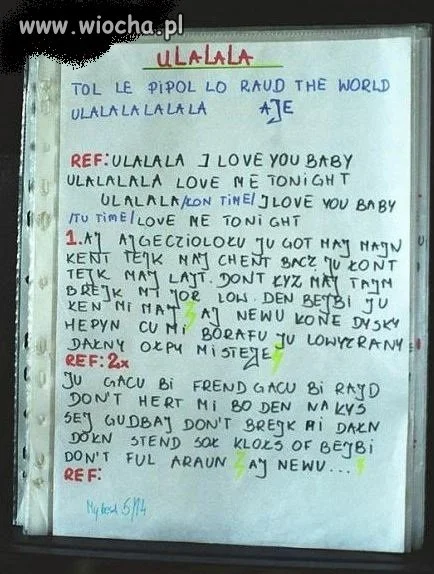 www.wiocha.pl
ULALALA
TOL LE PIPOL LO RAUD THE WORLD
ULALALALALALA AJE
REF: ULALALA J LOVE YOU BABY
ULALALALA LOVE ME TONIGHT
ULALALA /KON TIME/ J LOVE YOU BABY
/TU TIME/ LOVE ME TONIGHT
1. AJ AJGECZIOLOKU JU GOT MAJ MAJN
KENT TEJK MAJ CHENT BACZ. JU ŁONT
TEJK MAJ LAJT. DONT KYZ MAJ TAJM
BREJK MI JOR LOW. DEN BEJBI JU
KEN MI MAJ AJ NEWU KONE DYSKY
HEPYN CU MI BORAFU JU LOWYZRANY
DAŁNY OŁPU MISTEJE
REF: 2x
JU GACU BI FREND GACU BI RAJD
DON'T HERT MI BO DEN NA KYS
SEJ GUDBAJ DON'T BREJK MI DAŁN
DOŁN STEND SOŁ KLOŁS OF BEJBI
DON'T FUL ARAUN AJ NEWU...
REF:
5/14